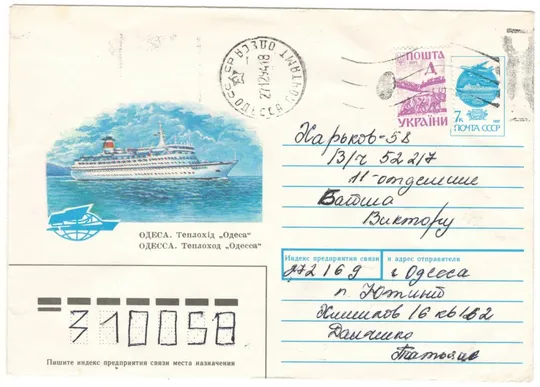 ПОЧТАМТ ОДЕССА
СССР
ПОШТА
Д
УКРАЇНИ
7к
ПОЧТА СССР
Харьков-58
В/ч 52217
11-отделение
Виктору
ОДЕСА. Теплохід „Одеса“
ОДЕССА. Теплоход „Одесса“
Индекс предприятия связи и адрес отправителя
272169 г Одесса
п Южный
Химиков 16 кв
310058
Пишите индекс предприятия связи места назначения